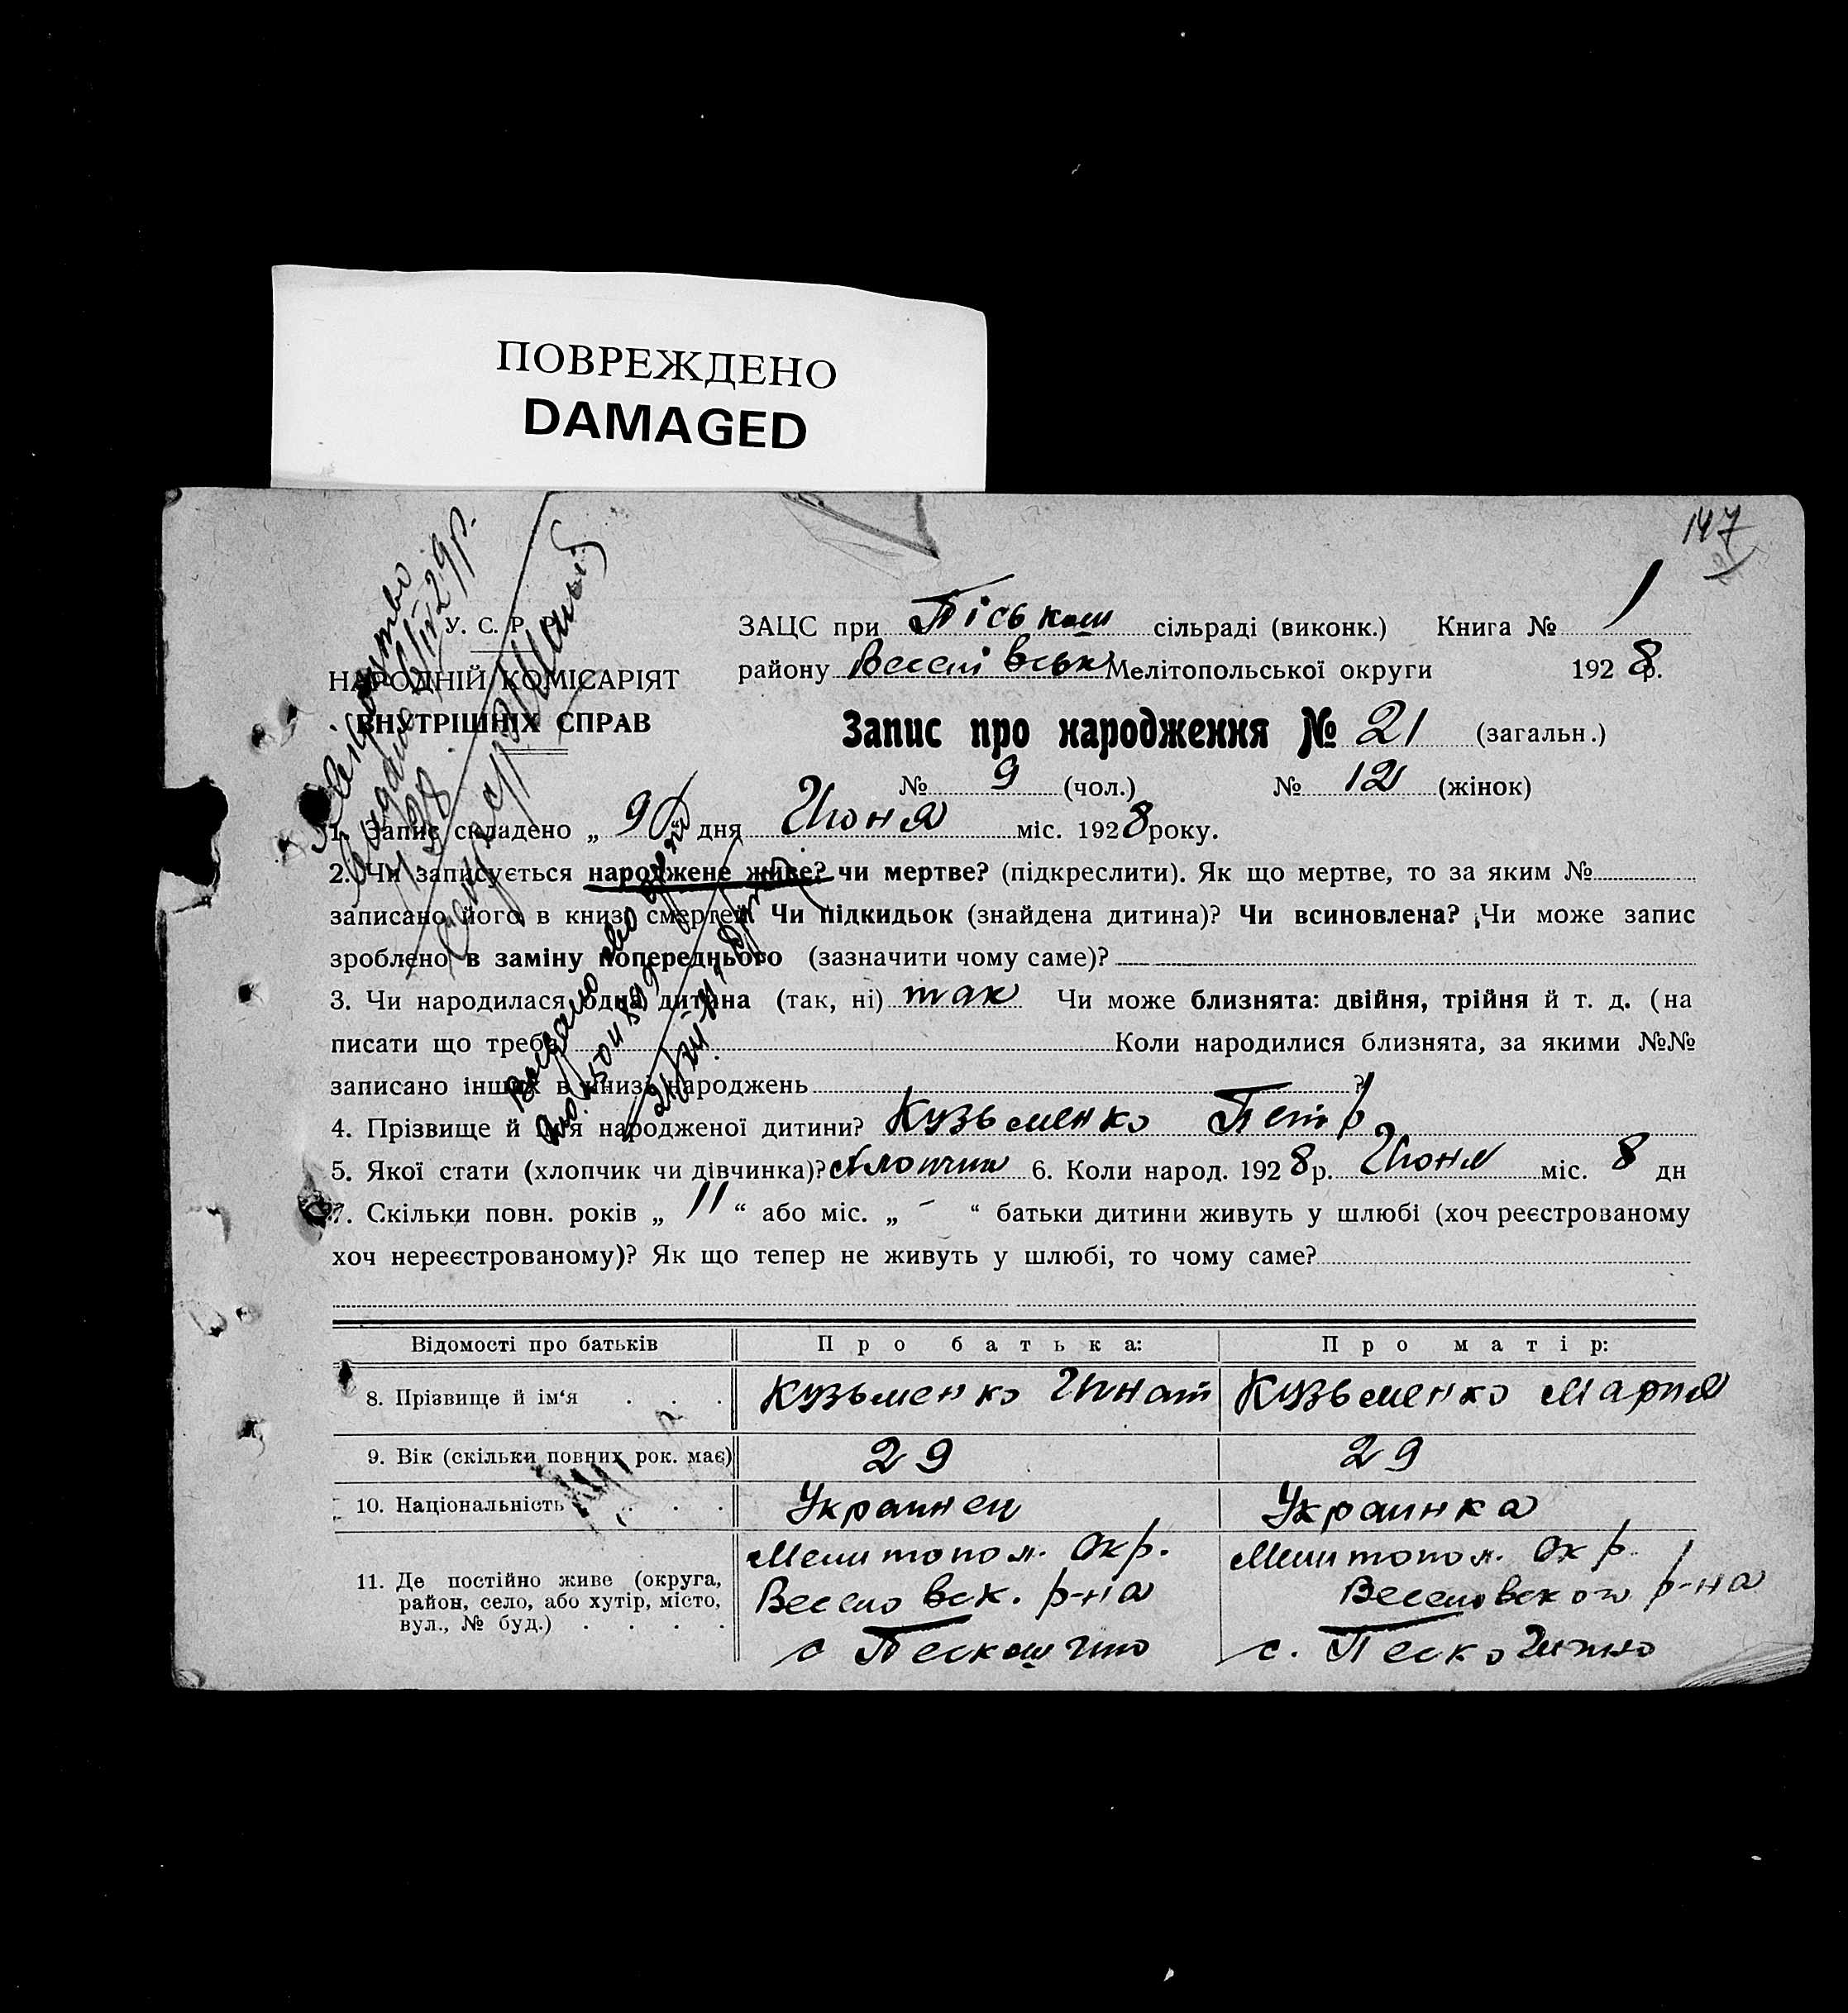 ПОВРЕЖДЕНО
DAMAGED
147
У. С. Р. Р.
НАРОДНІЙ КОМІСАРІЯТ
ВНУТРІШНІХ СПРАВ
ЗАЦС при Піськош сільраді (виконк.) Книга № 1
району Веселівськ Мелітопольської округи 1928 р.
Запис про народження № 21 (загальн.)
№ 9 (чол.) № 12 (жінок)
1. Запис складено „ 9 дня Июня міс. 1928 року.
2. Чи записується народжене живе? чи мертве? (підкреслити). Як що мертве, то за яким №
записано його в книзі смертей Чи підкидьок (знайдена дитина)? Чи всиновлена? Чи може запис
зроблено в заміну попереднього (зазначити чому саме)?
3. Чи народилася одна дитина (так, ні) так Чи може близнята: двійня, трійня й т. д. (на
писати що треба) Коли народилися близнята, за якими №№
записано інших в книзі народжень ?
4. Прізвище й ім'я народженої дитини? Кузьменко Петр
5. Якої стати (хлопчик чи дівчинка)? хлопчик 6. Коли народ. 1928 р. Июня міс. 8 дн
7. Скільки повн. років „ 11 “ або міс. „ - “ батьки дитини живуть у шлюбі (хоч реєстрованому
хоч нереєстрованому)? Як що тепер не живуть у шлюбі, то чому саме?
Відомості про батьків Про батька: Про матір:
8. Прізвище й ім'я . . . Кузьменко Игнат Кузьменко Мария
9. Вік (скільки повних рок. має) 29 29
10. Національність . . . Украинец Украинка
11. Де постійно живе (округа, район, село, або хутір, місто, вул., № буд.) . . . .
Мелитопол. Окр. Мелитопол. Окр.
Веселовск. р-на Веселовского р-на
с Пескошино с.